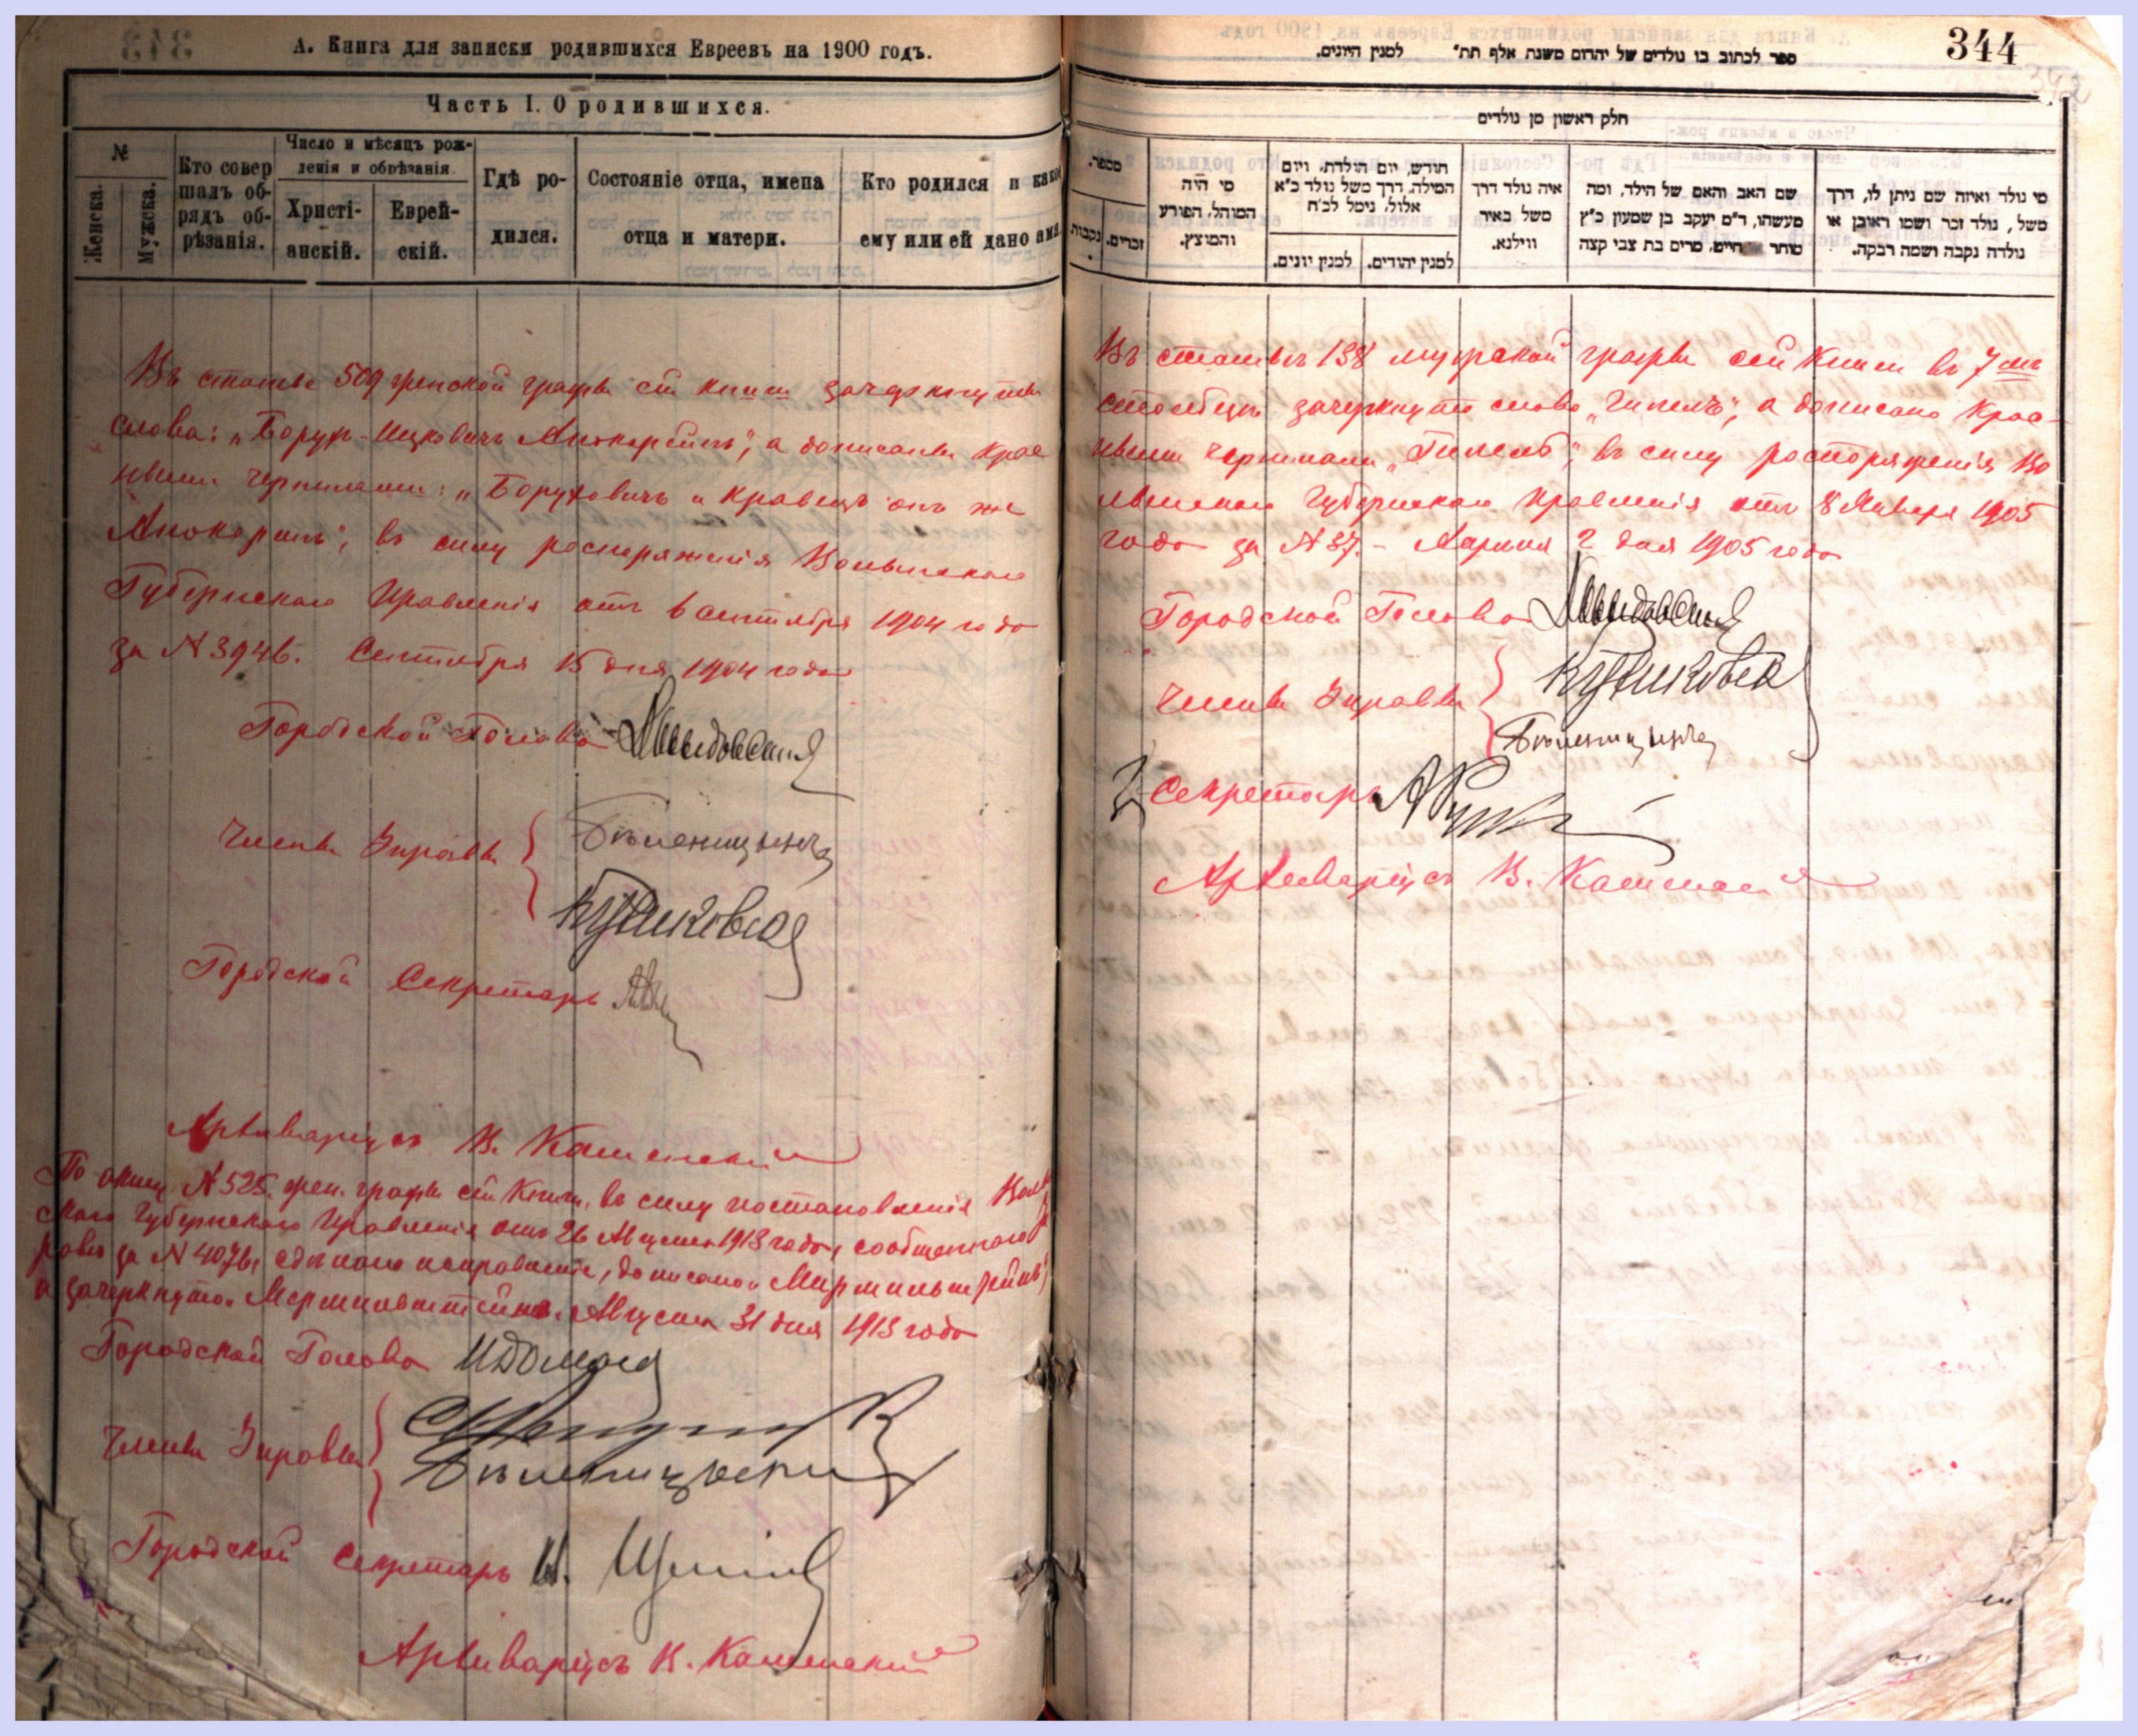 А. Книга для записки родившихся Евреевъ на 1900 годъ.
Часть I. О родившихся.
№
Женска.
Мужска.
Кто совер
шалъ об-
рядъ об-
рѣзанія.
Число и мѣсяцъ рож-
денія и обрѣзанія.
Христі-
анскій.
Еврей-
скій.
Гдѣ ро-
дился.
Состояніе отца, имена
отца и матери.
Кто родился и какое
ему или ей дано
Въ статьѣ 509 женской графы сей книги зачеркнуты
слова: „Борухъ-Ицковичъ Анокоринъ", а дописаны крас
ными чернилами: „Боруховичъ и Кравецъ онъ же
Анокоринъ", въ силу распоряженія Волынскаго
Губернскаго Правленія отъ 6 сентября 1904 года
за № 3946. Сентября 15 дня 1904 года
Городской Голова
Члены Управы
Бѣленицынъ
Городской Секретарь
Архиваріусъ В. Каменскій
По акту № 525. жен. графы сей книги, въ силу постановленія
скаго Губернскаго Правленія отъ 26 Августа 1913 года, сообщеннаго
за № 4076, сдѣлано исправленіе, дописано „Мирмильштейнъ"
а зачеркнуто „ Августа 31 дня 1913 года
Городской Голова
Члены Управы
Городской Секретарь И.
Архиваріусъ В. Каменскій
344
ספר לכתוב בו נולדים של יהודים משנת אלף תת" למנין היונים.
חלק ראשון מן נולדים
מספר.
נקבות
זכרים.
מי היה
המוהל, הפורע
והמוצץ.
חודש, יום הולדת, ויום
המילה, דרך משל נולד כ"א
אלול, ניסל לכ"ח
למנין יונים.
למנין יהודים.
איה נולד דרך
משל באיר
ווילנא.
שם האב והאם של הילד, ומה
מעשהו, ד"מ יעקב בן שמעון כ"ץ
סוחר חייט, מרים בת צבי קצה
מי נולד ואיזה שם ניתן לו, דרך
משל, נולד זכר ושמו ראובן או
נולדה נקבה ושמה רבקה.
Въ статьѣ 138 мужской графы сей книги въ 7мъ
столбцѣ зачеркнуто слово „ а дописано крас-
ными чернилами „ въ силу распоряженія Во
лынскаго Губернскаго Правленія отъ 8 Января 1905
года за № 37. – Марта 2 дня 1905 года
Городской Голова
Члены Управы
Бѣленицынъ
Секретарь
Архиваріусъ В. Каменскій